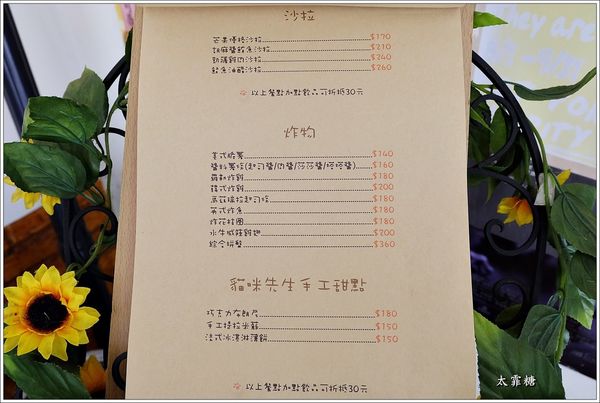 沙拉
芒果優格沙拉 $170
胡麻醬鮭魚沙拉 $210
勁辣雞肉沙拉 $240
鮭魚油醋沙拉 $260
以上餐點加點飲品可折抵30元
炸物
美式脆薯 $140
醬料薯條(起司醬/肉醬/莎莎醬/塔塔醬) $160
哥勒炸雞 $180
韓式炸雞 $200
馬茲瑞拉起司條 $180
英式炸魚 $180
炸花枝圈 $180
水牛城辣雞翅 $200
綜合拼盤 $360
貓咪先生手工甜點
巧克力布朗尼 $180
手工提拉米蘇 $150
法式冰淇淋薄餅 $150
以上餐點加點飲品可折抵30元
They are
太霏糖